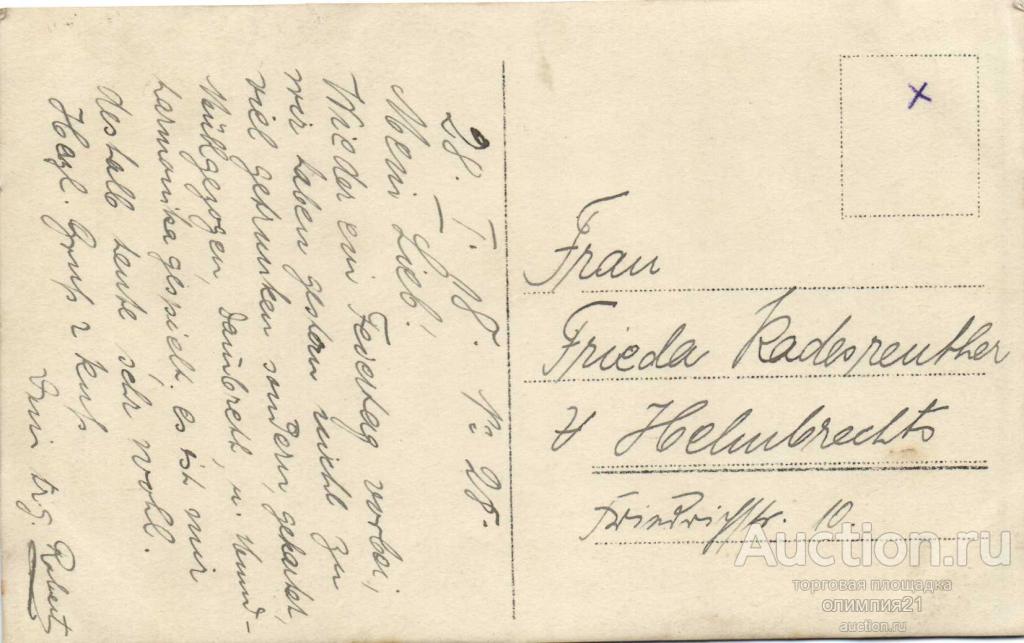 28. I. 18. N: 25.
Mein Lieb!
Wieder ein Feiertag vorbei,
wir haben gestern nicht zu
viel getrunken sondern, gekartet,
Mühlgezogen, Dambrett, u. Mund-
harmonika gespielt. es ist mir
deshalb heute sehr wohl.
Herzl. Gruß u Kuß
Dein trg. Robert
Frau
Frieda Kadesreuther
Helmbrechts
Friedrichstr. 10.
Auction.ru
торговая площадка
олимпия21
auction.ru